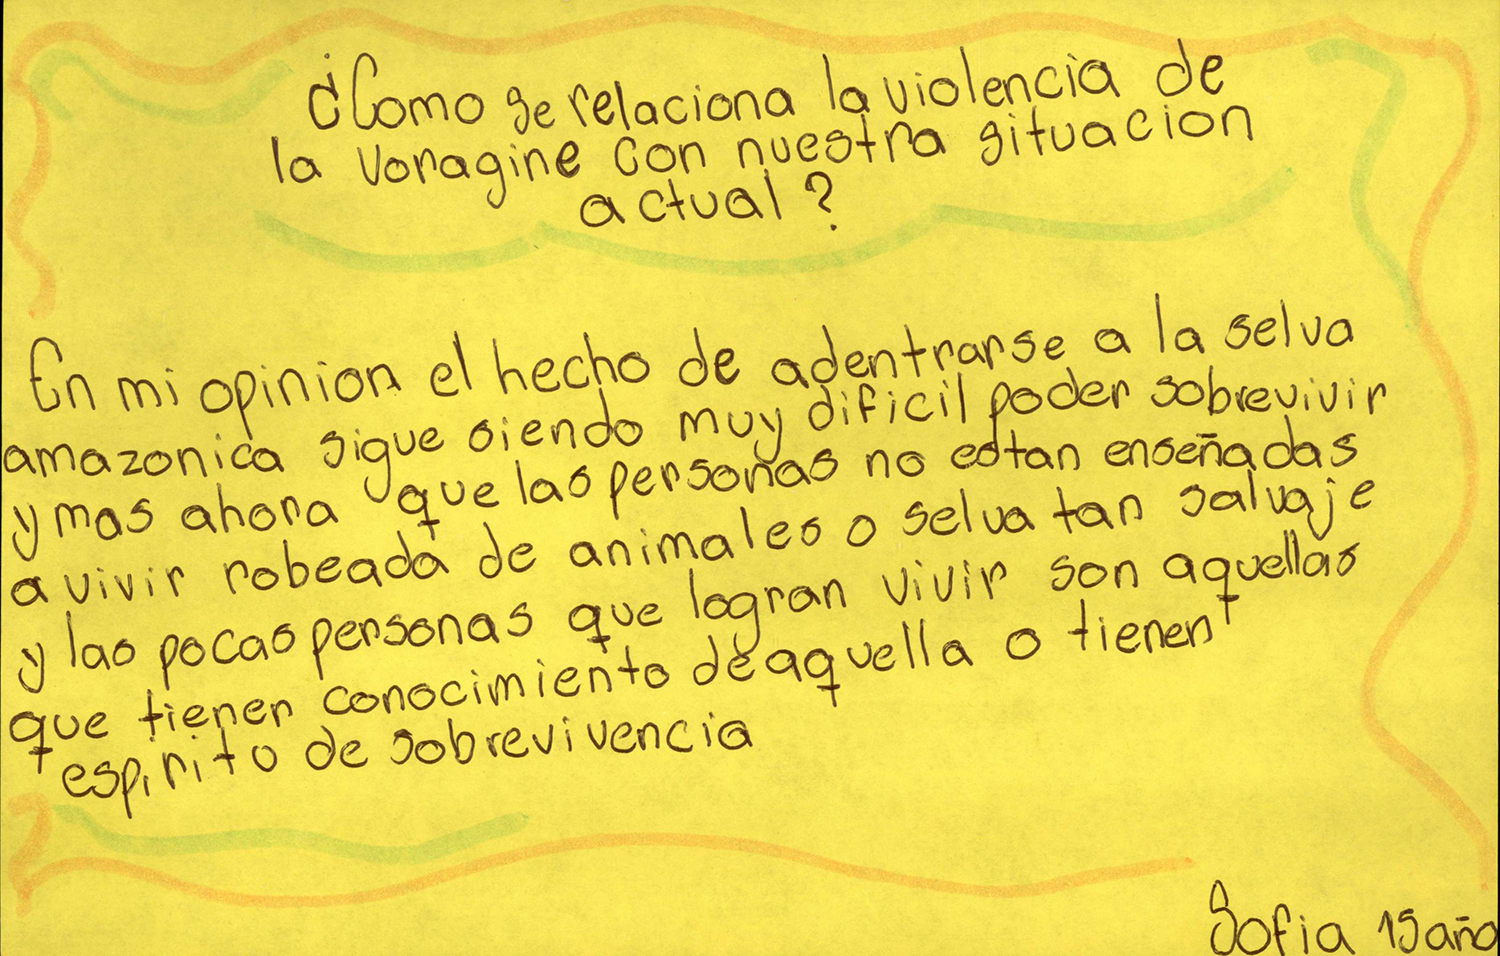 ¿Como se relaciona la violencia de
la Voragine con nuestra situacion
actual?
En mi opinion el hecho de adentrarse a la selva
amazonica sigue siendo muy dificil poder sobrevivir
y mas ahora que las personas no estan enseñadas
a vivir robeada de animales o selva tan salvaje
y las pocas personas que logran vivir son aquellas
que tienen conocimiento de aquella o tienen
espirito de sobrevivencia
Sofia 15 año